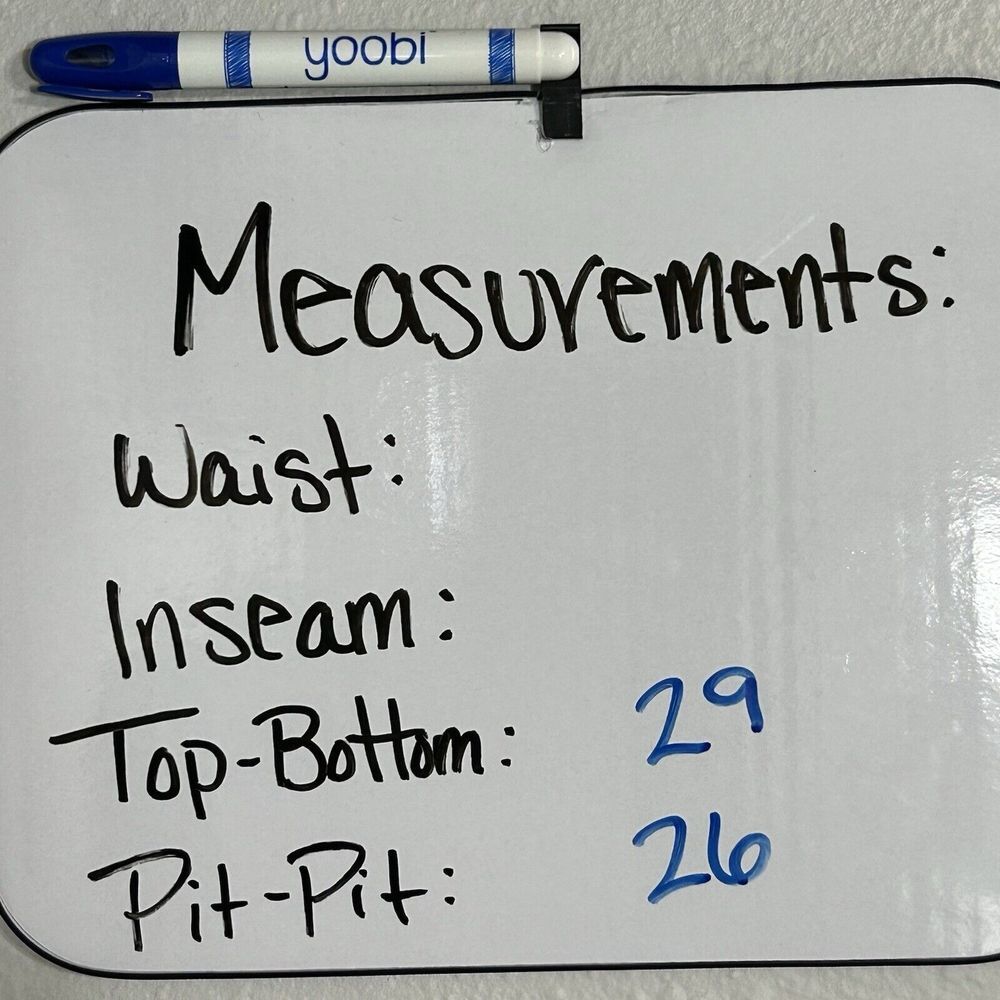 yoobi
Measurements:
Waist:
Inseam:
Top-Bottom: 29
Pit-Pit: 26